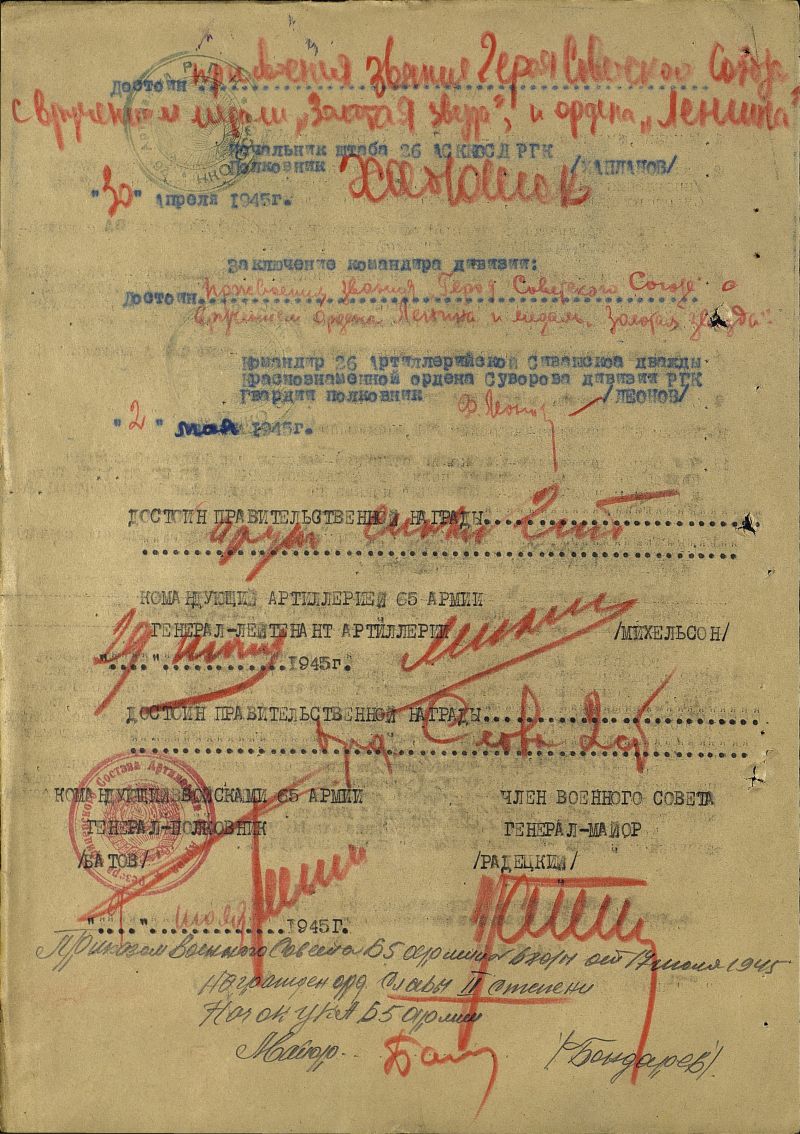 Достоин присвоения звания Героя Советского Союза
с вручением медали „Золотая звезда", и ордена „Ленина"
Начальник штаба 26 АСККОСД РГК
Полковник /КАПЛАНОВ/
"30" Апреля 1945г.
Заключение командира дивизии:
Достоин присвоения звания Героя Советского Союза с
вручением ордена Ленина и медали „Золотая звезда"
Командир 26 Артиллерийской Сивашской дважды
Краснознаменной ордена Суворова дивизии РГК
Гвардии полковник /ЛЕОНОВ/
"2" мая 1945г.
ДОСТОИН ПРАВИТЕЛЬСТВЕННОЙ НАГРАДЫ
орден Славы 2 ст
КОМАНДУЮЩИЙ АРТИЛЛЕРИЕЙ 65 АРМИИ
ГЕНЕРАЛ-ЛЕЙТЕНАНТ АРТИЛЛЕРИИ /МИХЕЛЬСОН/
"...." 1945г.
ДОСТОИН ПРАВИТЕЛЬСТВЕННОЙ НАГРАДЫ
орд. Славы 2 ст
КОМАНДУЮЩИЙ ВОЙСКАМИ 65 АРМИИ ЧЛЕН ВОЕННОГО СОВЕТА
ГЕНЕРАЛ-ПОЛКОВНИК ГЕНЕРАЛ-МАЙОР
/БАТОВ/ /РАДЕЦКИЙ/
"....." 1945г.
Приказом Военного Совета 65 армии от 17 июля 1945
Награжден орд. Славы II степени
Нач ОК УКА 65 армии
Майор /Бондарев/.